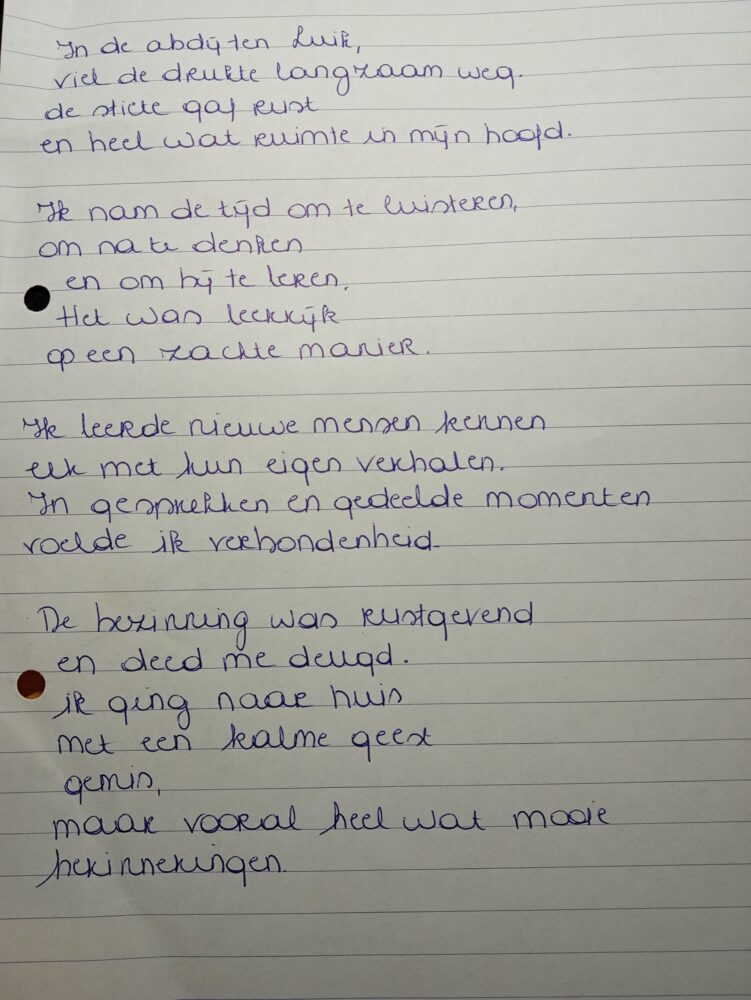 In de abdij ten Luik,
viel de drukte langzaam weg.
de stilte gaf rust
en heel wat ruimte in mijn hoofd.
Ik nam de tijd om te luisteren,
om na te denken
en om bij te leren.
Het was leerrijk
op een zachte manier.
Ik leerde nieuwe mensen kennen
elk met hun eigen verhalen.
In gesprekken en gedeelde momenten
voelde ik verbondenheid.
De bezinning was rustgevend
en deed me deugd.
ik ging naar huis
met een kalme geest
gemis,
maar vooral heel wat mooie
herinneringen.